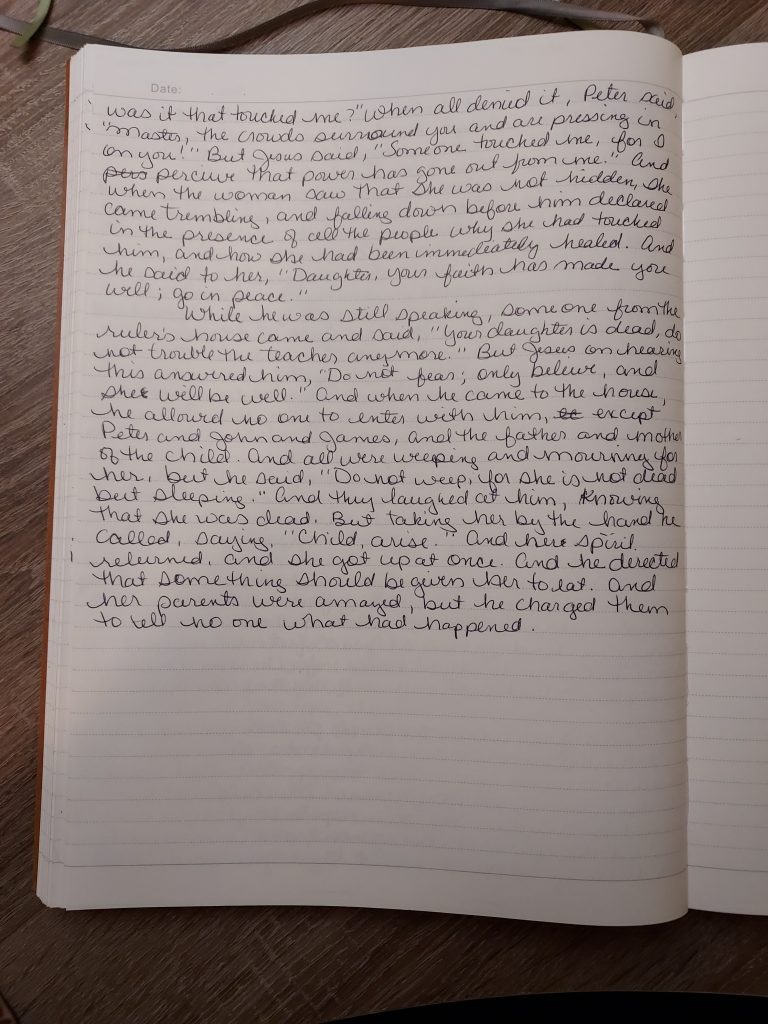 Date:
was it that touched me?" When all denied it, Peter said,
"Master, the crowds surround you and are pressing in
on you!" But Jesus said, "Someone touched me, for I
perceive that power has gone out from me." And
when the woman saw that she was not hidden, she
came trembling, and falling down before him declared
in the presence of all the people why she had touched
him, and how she had been immediately healed. And
he said to her, "Daughter, your faith has made you
well; go in peace."
While he was still speaking, someone from the
ruler's house came and said, "Your daughter is dead, do
not trouble the teacher anymore." But Jesus on hearing
this answered him, "Do not fear; only believe, and
she will be well." And when he came to the house,
he allowed no one to enter with him, except
Peter and John and James, and the father and mother
of the child. And all were weeping and mourning for
her, but he said, "Do not weep, for she is not dead
but sleeping." And they laughed at him, knowing
that she was dead. But taking her by the hand he
called, saying, "Child, arise." And her spirit
returned, and she got up at once. And he derected
that something should be given her to eat. And
her parents were amazed, but he charged them
to tell no one what had happened.